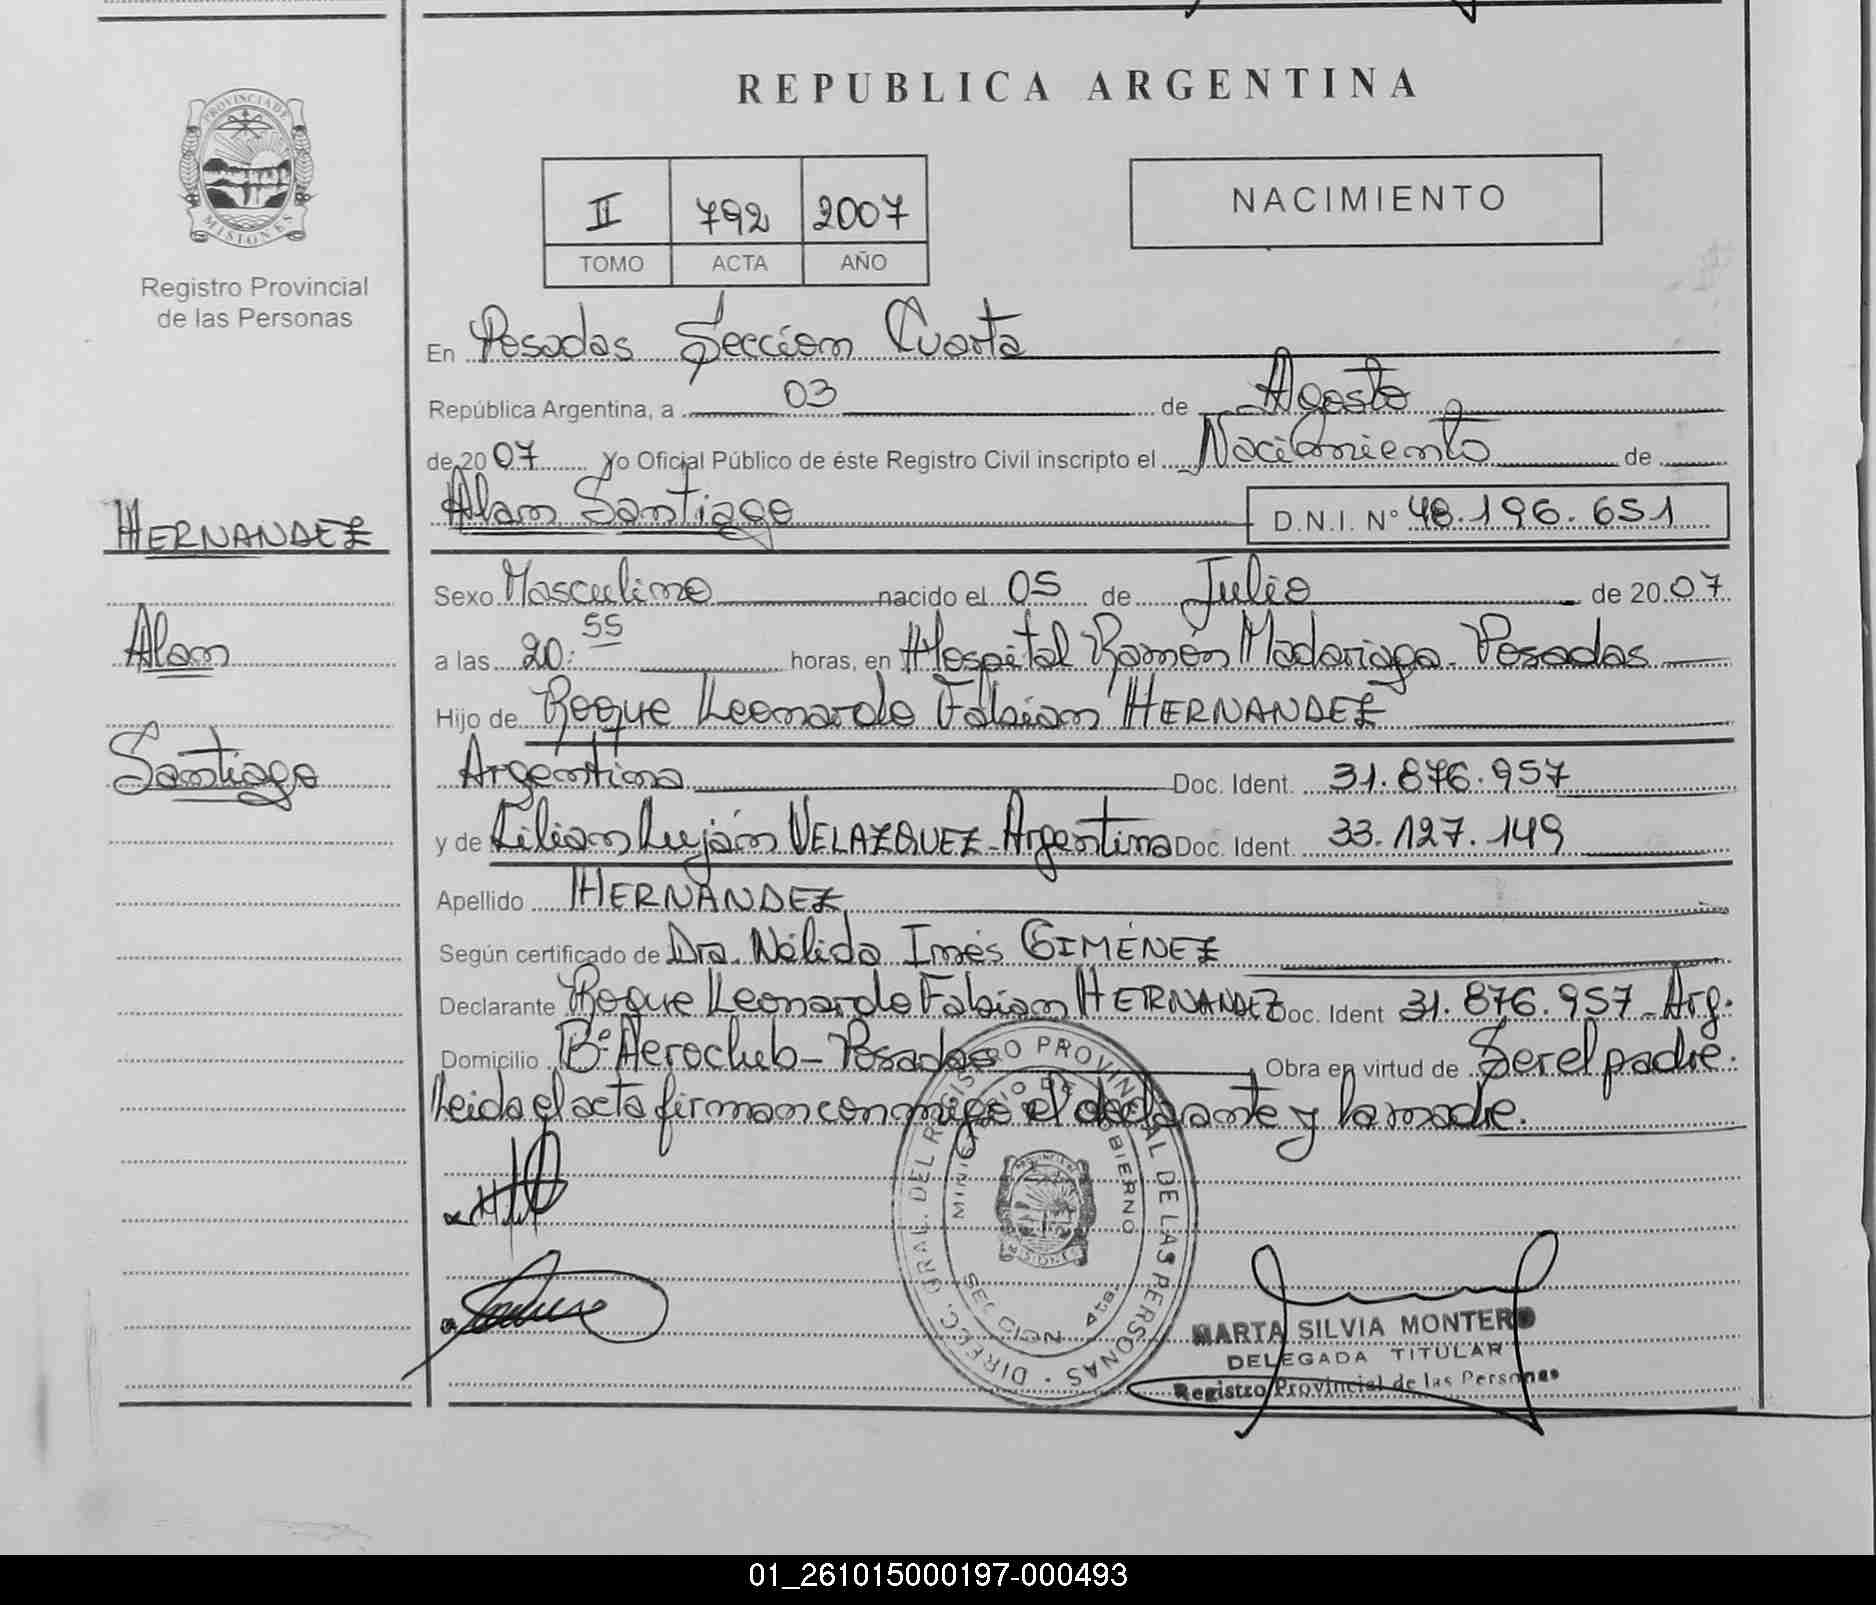 REPUBLICA ARGENTINA
PROVINCIA DE
MISIONES
Registro Provincial
de las Personas
II 792 2007
TOMO ACTA AÑO
NACIMIENTO
En Posadas Sección Cuarta
República Argentina, a 03 de Agosto
de 2007 Yo Oficial Público de éste Registro Civil inscripto el Nacimiento de
Alan Santiago D.N.I. N° 48.196.651
HERNANDEZ
Alan
Santiago
Sexo Masculino nacido el 05 de Julio de 2007
a las 20:55 horas, en Hospital Ramón Madariaga - Posadas
Hijo de Roque Leonardo Fabian HERNANDEZ
Argentina Doc. Ident. 31.876.957
y de Lilian Luján VELAZQUEZ - Argentina Doc. Ident. 33.127.149
Apellido HERNANDEZ
Según certificado de Dra. Nélida Inés GIMÉNEZ
Declarante Roque Leonardo Fabian HERNANDEZ Doc. Ident 31.876.957 - Arg.
Domicilio B° Aeroclub - Posadas Obra en virtud de Ser el padre.
Leida el acta firman conmigo el declarante y la madre.
DIRECC. GRAL. DEL REGISTRO PROVINCIAL DE LAS PERSONAS
MINISTERIO DE GOBIERNO
SECCION 4ta.
MISIONES
MARTA SILVIA MONTERO
DELEGADA TITULAR
Registro Provincial de las Personas
01_261015000197-000493